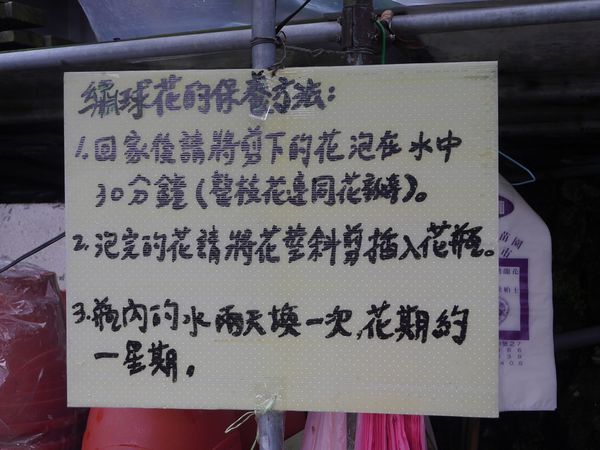 繡球花的保養方法:
1.回家後請將剪下的花泡在水中
30分鐘(整枝花連同花瓣)。
2.泡完的花請將花莖斜剪插入花瓶。
3.瓶內的水兩天換一次,花期約
一星期.